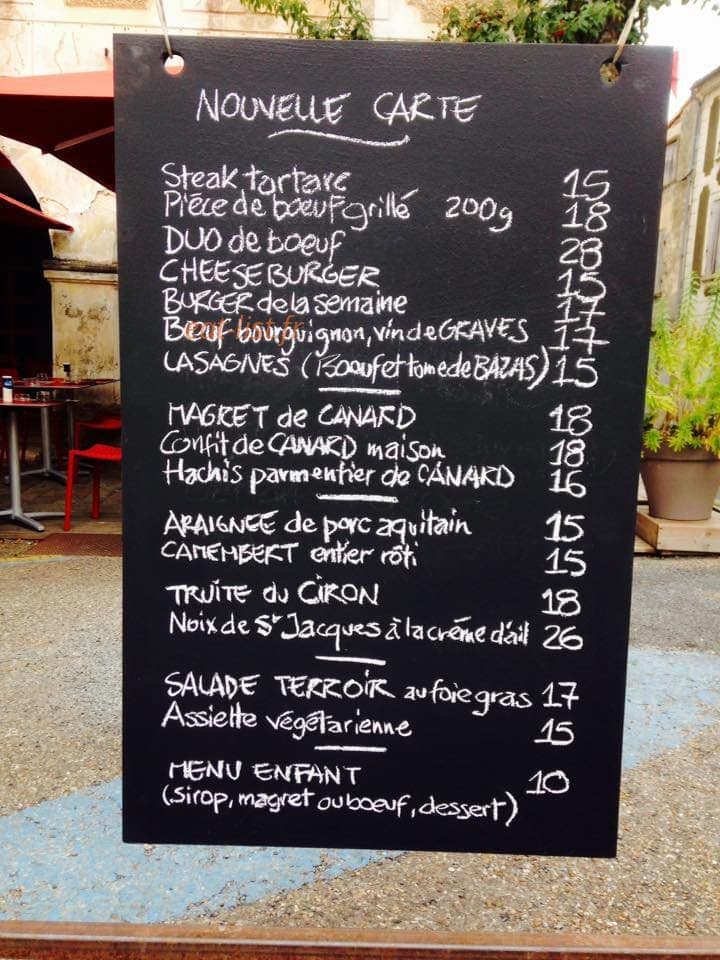 NOUVELLE CARTE
Steak tartare 15
Piéce de boeuf grillé 200g 18
DUO de boeuf 28
CHEESEBURGER 15
BURGER de la semaine 17
Boeuf bourguignon, vin de GRAVES 17
eat-list.fr
LASAGNES (Boeuf et tome de BAZAS) 15
MAGRET de CANARD 18
Confit de CANARD maison 18
Hachis parmentier de CANARD 16
ARAIGNEE de porc aquitain 15
CAMEMBERT entier rôti 15
TRUITE du CIRON 18
Noix de St Jacques à la créme d'ail 26
SALADE TERROIR au foie gras 17
Assiette végétarienne 15
MENU ENFANT 10
(sirop, magret ou boeuf, dessert)